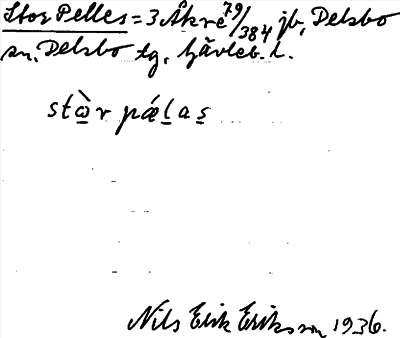 Stor Pelles = 3 Åkre 79/384 jb, Delsbo
sn, Delsbo tg, Gävleb. l.
stὼ̲r pǽl̲as̲
Nils Erik Eriksson 1936.